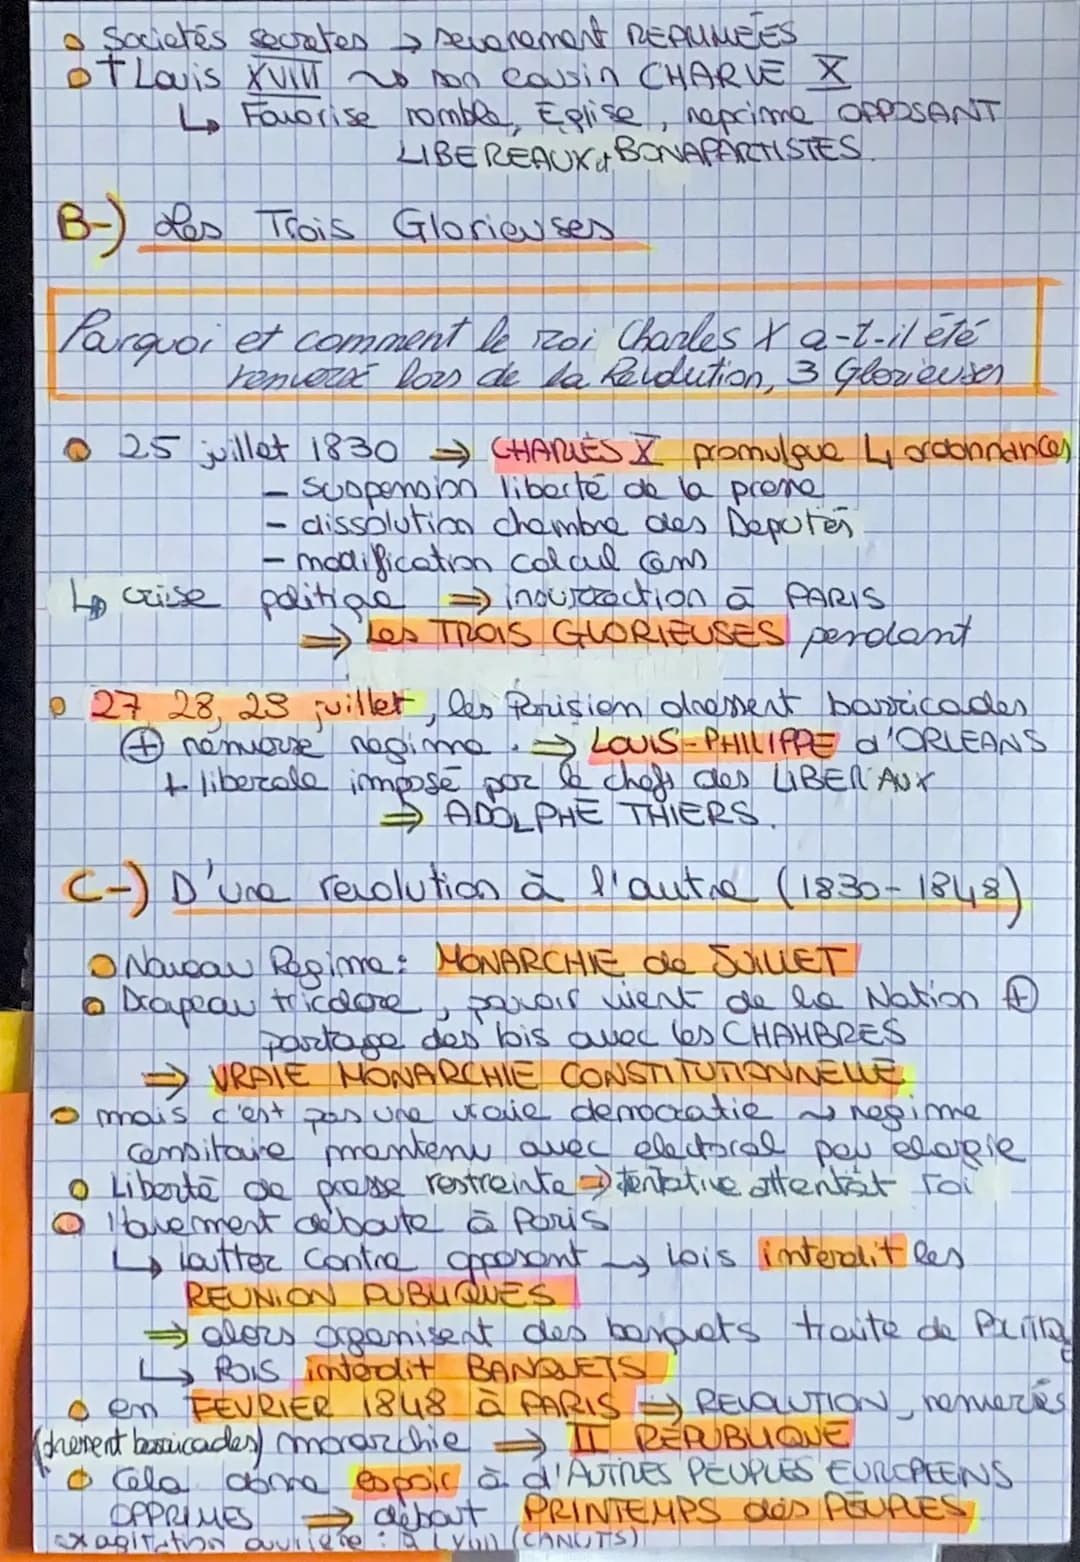 Societés secretes → severement REPRIMEES
† Louis XVIII ~> son cousin CHARLE X
↳ Favorise nomble, Eglise, reprime OPPOSANT
LIBEREAUX et BONAPARTISTES.
B-) Les Trois Glorieuses
Pourquoi et comment le roi Charles X a-t-il été
renversé lors de la Révolution, 3 Glorieuses
25 juillet 1830 ⇒ CHARLES X promulgue 4 ordonnances
- suspension liberté de la presse
- dissolution chambre des Deputés
- modification calcul cens
↳ crise politique ⇒ insurrection à PARIS
⇒ Les TROIS GLORIEUSES pendant
27 28, 29 juillet, les Parisien dressent barricades
⊕ renverse regime. ⇒ LOUIS-PHILIPPE d'ORLEANS
+ liberale imposé par le chefs des LIBERAUX
⇒ ADOLPHE THIERS.
C-) D'une revolution à l'autre (1830-1848)
Nouveau Regime: MONARCHIE de JUILLET
Drapeau tricolore, pouvoir vient de la Nation ⊕
partage des lois avec les CHAMBRES
⇒ VRAIE MONARCHIE CONSTITUTIONNELLE
mais c'est pas une vraie democratie ~> regime
censitaire mantenu avec electoral peu elargie
Liberté de presse restreinte ⇒ tentative attentat roi
Mouvement debute à Paris
↳ lutter contre opposant → lois interdit les
REUNION PUBLIQUES
⇒ alors organisent des banquets traite de
↳ ROIS interdit BANQUETS
en FEVRIER 1848 à PARIS ⇒ REVOLUTION, renversés
(drement barricades) monarchie ⇒ II REPUBLIQUE
Cela donne espoir à d'AUTRES PEUPLES EUROPEENS
OPPRIMES ⇒ debout PRINTEMPS des PEUPLES
ex agitation ouvriere : à Lyon (CANUTS)